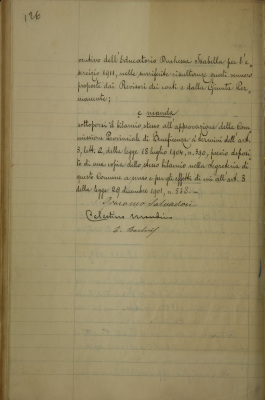 126
vastivo dell'Educatorio Duchessa Isabella per l'e-
sercizio 1911, nelle surriferite risultanze quali vennero
proposti dai Revisori dei conti e dalla Giunta Per-
manente;
e manda
sottoporsi il bilancio stesso all'approvazione della Com-
missione Provinciale di Beneficenza a termini dell'art.
3, lett. 2, della legge 18 luglio 1904, n. 390, previo deposi-
to di una copia dello stesso bilancio nella Segreteria di
questo Comune a senso e per gli effetti di cui all'art. 3
della legge 29 dicembre 1901, n. 535.
Giacomo Salvadori
Celestino